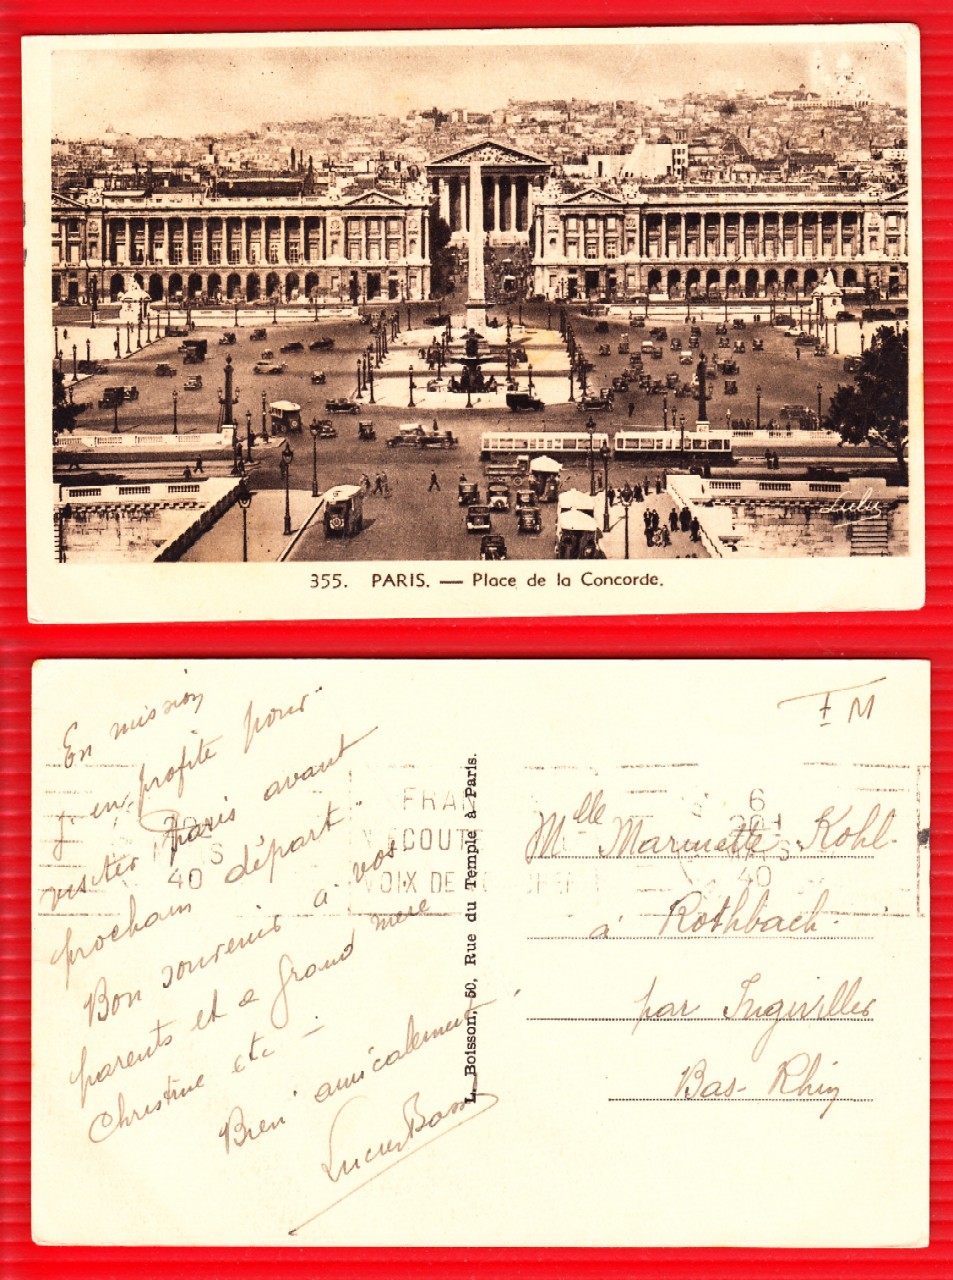 Lulu
355. PARIS. — Place de la Concorde.
En mission
j'en profite pour
visiter paris avant
prochain départ.
Bon souvenir à vos
parents et a grand mere
Christine etc –
Bien amicalement
Lucien
L. Boisson, 50, Rue du Temple à Paris.
FM
FRAN
ECOUTE
VOIX DE
40
6
40
Mlle Marinette Kohl.
à Rothbach.
par Ingwiller
Bas-Rhin